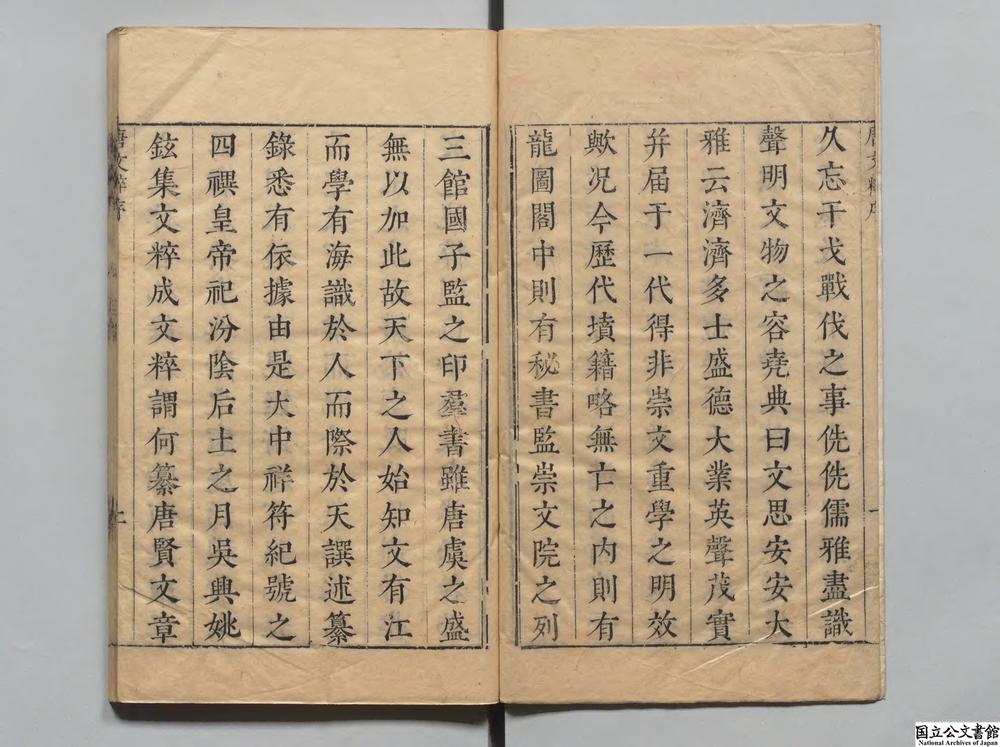 久忘干戈戰伐之事侁侁儒雅盡識
聲明文物之容堯典曰文思安安大
雅云濟濟多士盛德大業英聲茂實
并届于一代得非崇文重學之明效
歟况今歷代墳籍略無亡之内則有
龍圖閣中則有秘書監崇文院之列
三館國子監之印羣書雖唐虞之盛
無以加此故天下之人始知文有江
而學有海識於人而際於天譔述纂
錄悉有依據由是大中祥符紀號之
四禩皇帝祀汾陰后土之月吳興姚
鉉集文粹成文粹謂何纂唐賢文章
国立公文書館
National Archives of Japan